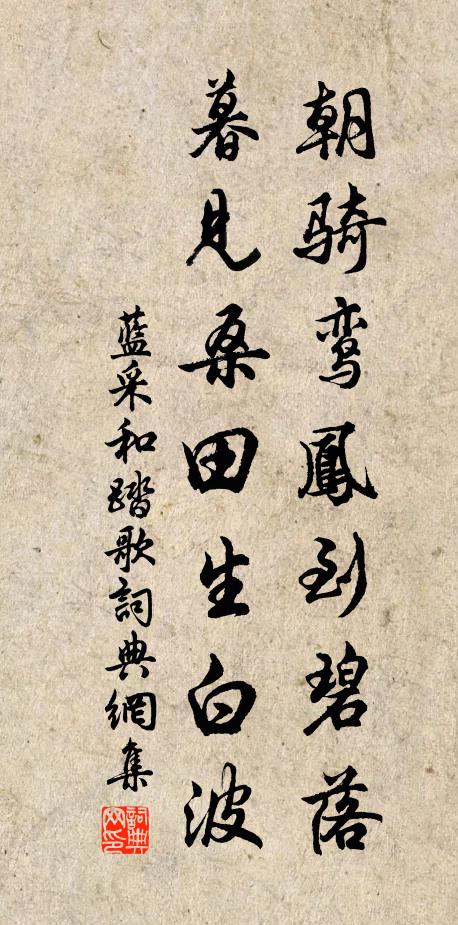 朝骑鸾鳳到碧落
暮見桑田生白波
藍采和踏歌詞典網集
詞典网印